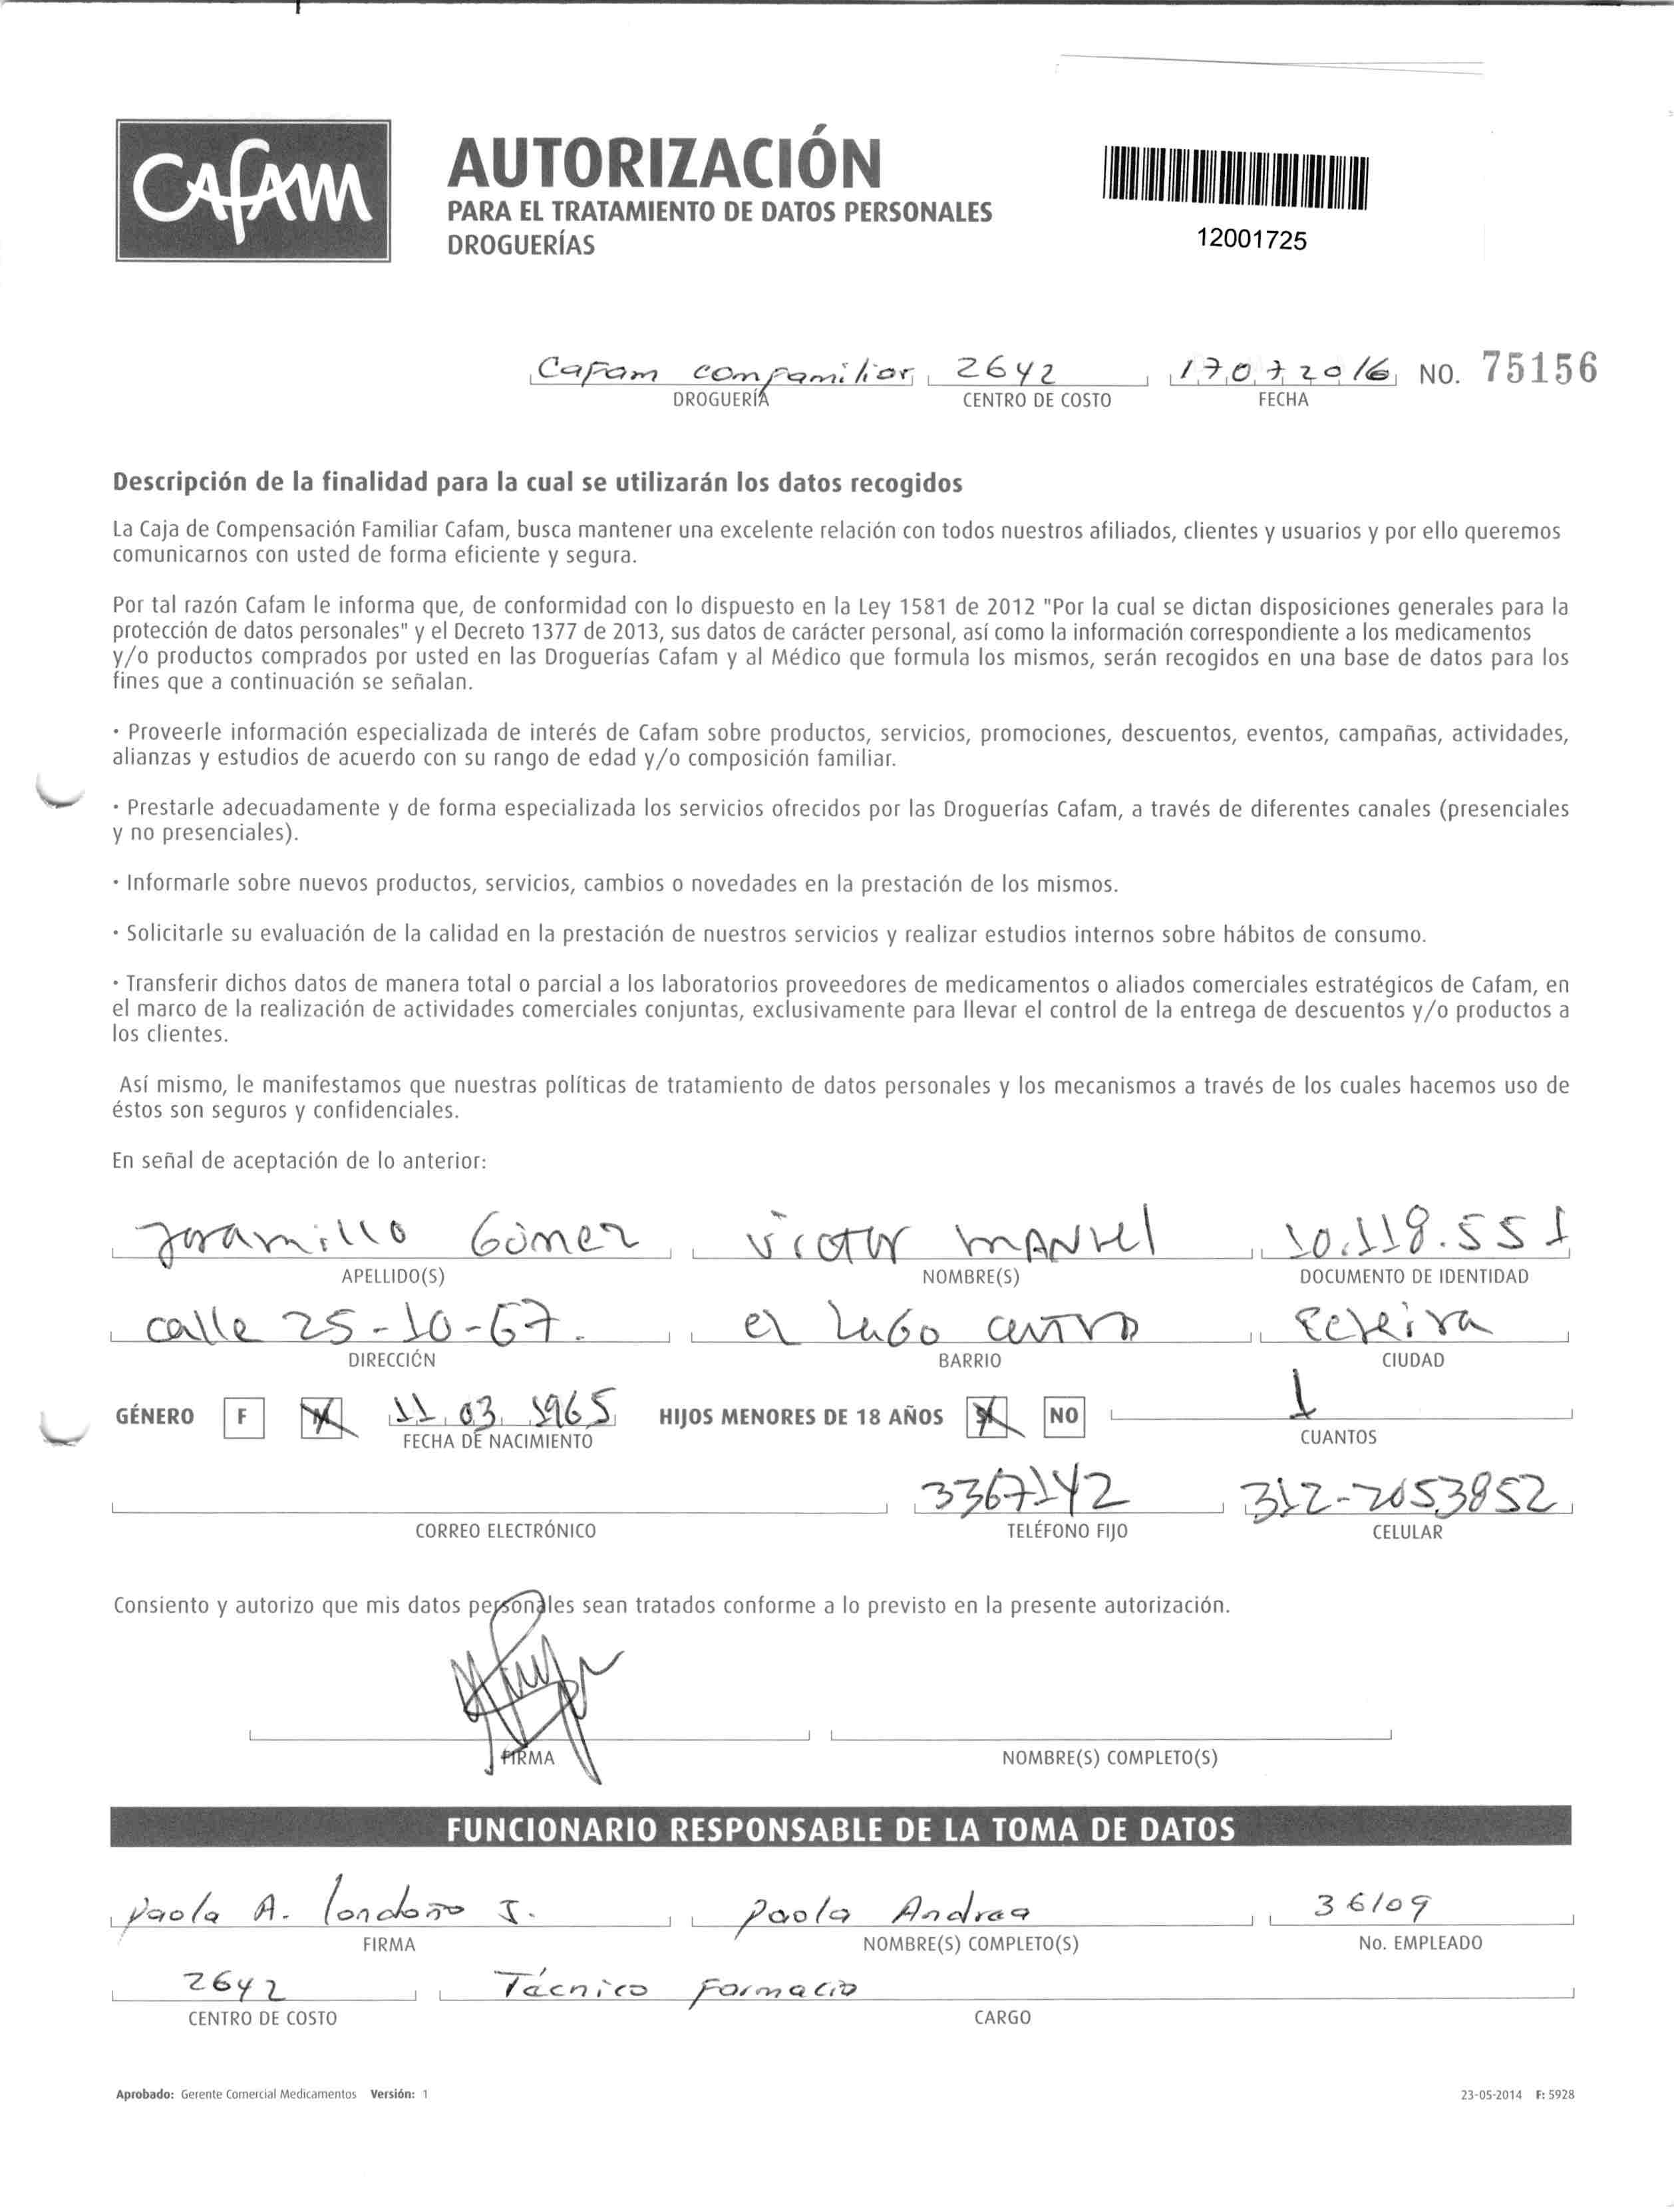 CAfAM
AUTORIZACIÓN
PARA EL TRATAMIENTO DE DATOS PERSONALES
DROGUERÍAS
12001725
Cafam comfamiliar 2642 17 07 2016 NO. 75156
DROGUERÍA CENTRO DE COSTO FECHA
Descripción de la finalidad para la cual se utilizarán los datos recogidos
La Caja de Compensación Familiar Cafam, busca mantener una excelente relación con todos nuestros afiliados, clientes y usuarios y por ello queremos
comunicarnos con usted de forma eficiente y segura.
Por tal razón Cafam le informa que, de conformidad con lo dispuesto en la Ley 1581 de 2012 "Por la cual se dictan disposiciones generales para la
protección de datos personales" y el Decreto 1377 de 2013, sus datos de carácter personal, así como la información correspondiente a los medicamentos
y/o productos comprados por usted en las Droguerías Cafam y al Médico que formula los mismos, serán recogidos en una base de datos para los
fines que a continuación se señalan.
· Proveerle información especializada de interés de Cafam sobre productos, servicios, promociones, descuentos, eventos, campañas, actividades,
alianzas y estudios de acuerdo con su rango de edad y/o composición familiar.
· Prestarle adecuadamente y de forma especializada los servicios ofrecidos por las Droguerías Cafam, a través de diferentes canales (presenciales
y no presenciales).
· Informarle sobre nuevos productos, servicios, cambios o novedades en la prestación de los mismos.
· Solicitarle su evaluación de la calidad en la prestación de nuestros servicios y realizar estudios internos sobre hábitos de consumo.
· Transferir dichos datos de manera total o parcial a los laboratorios proveedores de medicamentos o aliados comerciales estratégicos de Cafam, en
el marco de la realización de actividades comerciales conjuntas, exclusivamente para llevar el control de la entrega de descuentos y/o productos a
los clientes.
Así mismo, le manifestamos que nuestras políticas de tratamiento de datos personales y los mecanismos a través de los cuales hacemos uso de
éstos son seguros y confidenciales.
En señal de aceptación de lo anterior:
Jaramillo Gómez Victor Manuel 10.118.551
APELLIDO(S) NOMBRE(S) DOCUMENTO DE IDENTIDAD
calle 25-10-67. el Lago centro Pereira
DIRECCIÓN BARRIO CIUDAD
GÉNERO F M 11 03 1965 HIJOS MENORES DE 18 AÑOS SI NO 1
FECHA DE NACIMIENTO CUANTOS
3367142 312-2053852
CORREO ELECTRÓNICO TELÉFONO FIJO CELULAR
Consiento y autorizo que mis datos personales sean tratados conforme a lo previsto en la presente autorización.
FIRMA NOMBRE(S) COMPLETO(S)
FUNCIONARIO RESPONSABLE DE LA TOMA DE DATOS
Paola A. Londoño J. Paola Andrea 36109
FIRMA NOMBRE(S) COMPLETO(S) No. EMPLEADO
2642 Técnico Farmacia
CENTRO DE COSTO CARGO
Aprobado: Gerente Comercial Medicamentos Versión: 1 23-05-2014 F: 5928